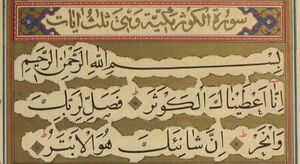 سورة الكوثر مكية وهي ثلث آيات
بسم الله الرحمن الرحيم
إنا أعطيناك الكوثر فصل لربك
وانحر إن شانئك هو الأبتر